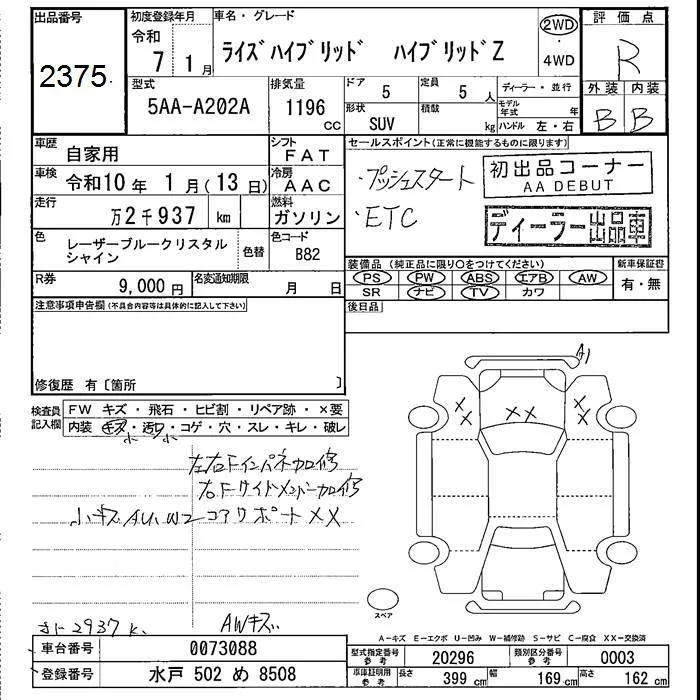 出品番号
2375
初度登録年月
令和
7 1月
車名・グレード
ライズハイブリッド ハイブリッドZ
2WD
・
4WD
評価点
R
外装 内装
B B
型式
5AA-A202A
排気量
1196
cc
ドア
5
定員
5 人
形状
SUV
積載
kg
ディーラー・並行
モデル年式 年
ハンドル 左・右
車歴
自家用
シフト
FAT
車検
令和10年 1月(13日)
冷房
AAC
走行
万2千937 km
燃料
ガソリン
色
レーザーブルークリスタル
シャイン
色替
色コード
B82
R券
9,000円
名変通知期限
月 日
セールスポイント(正常に機能するものに限ります)
・プッシュスタート
・ETC
初出品コーナー
AA DEBUT
ディーラー出品車
装備品(純正品に限り○をつけてください)
PS PW ABS エアB AW
SR ナビ TV カワ
新車保証書
有・無
後日品
注意事項申告欄(不具合内容等は具体的に記入して下さい)
修復歴 有〔箇所 〕
検査員
記入欄
FW キズ・飛石・ヒビ割・リペア跡・×要
内装 キズ・汚ワ・コゲ・穴・スレ・キレ・破レ
小 小
左右Fインパネ加修
右Fサイドメンバー加修
小キズ AU、W2 コアサポートXX
AWキズ
A1
XX
XX
XX
スペア
A-キズ E-エクボ U-凹み W-補修跡 S-サビ C-腐食 XX-交換済
車台番号
0073088
登録番号
水戸 502 め 8508
型式指定番号
参考
20296
類別区分番号
参考
0003
車庫証明用
参考
長さ
399 cm
幅
169 cm
高さ
162 cm